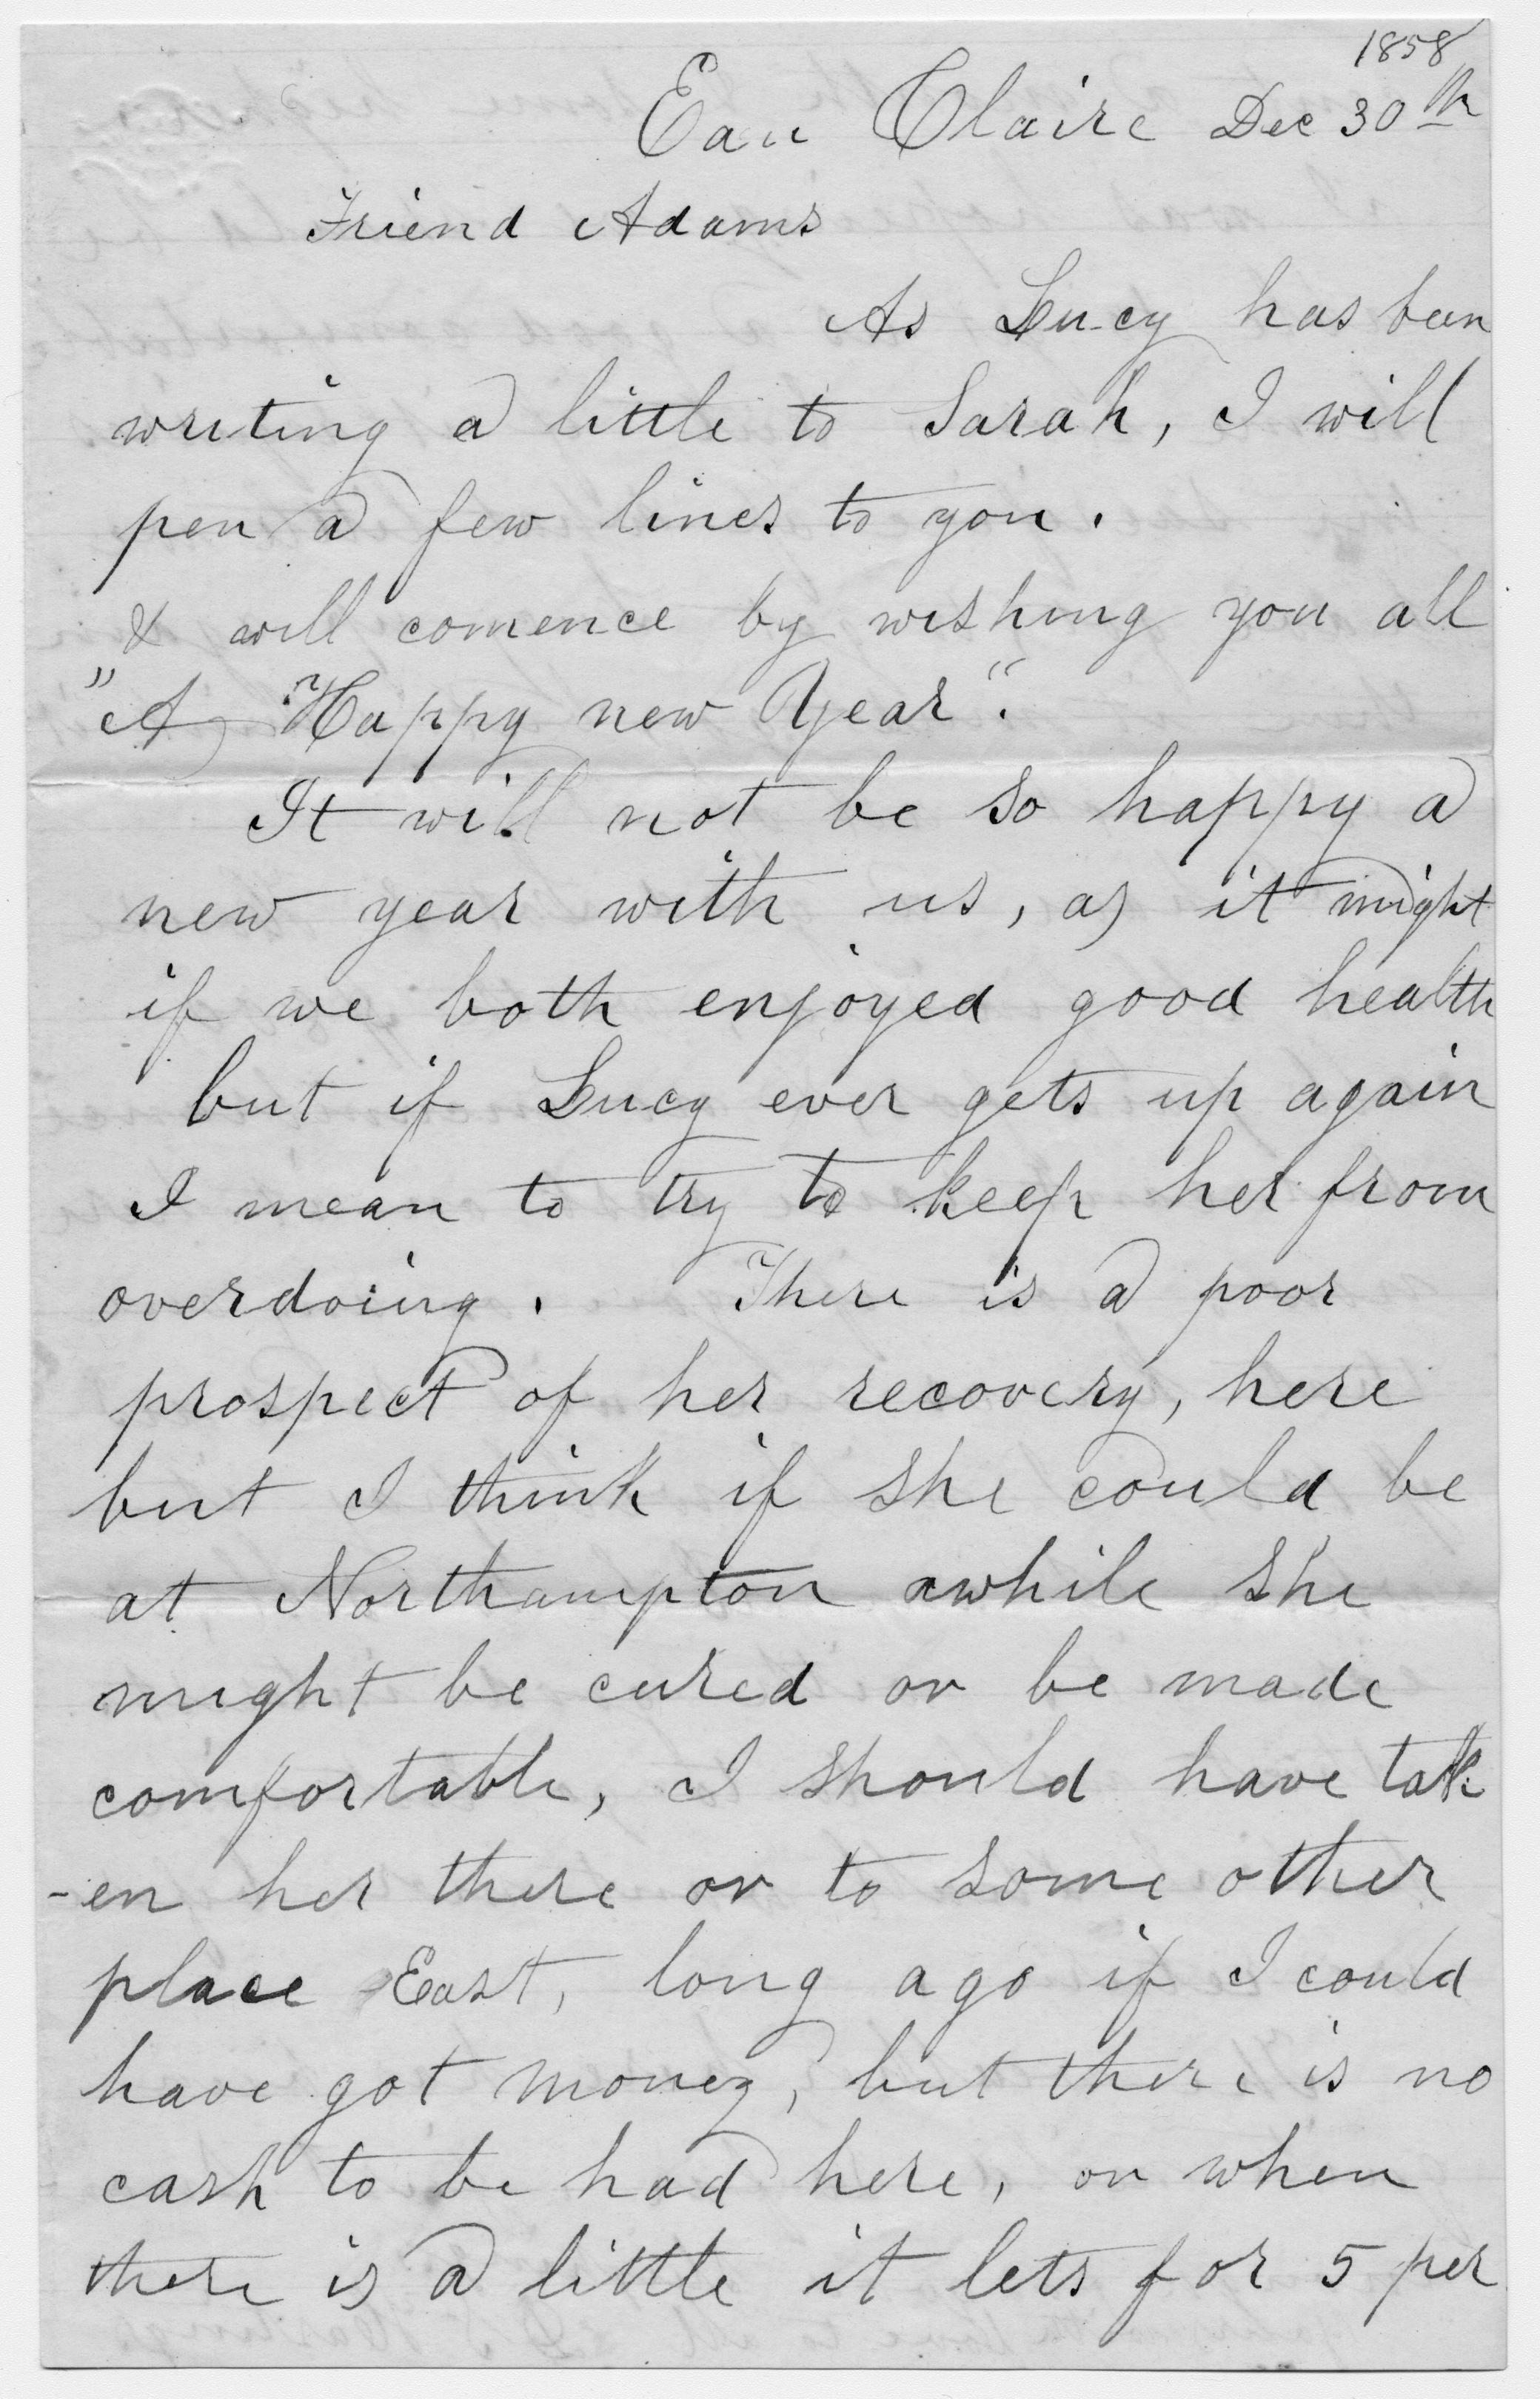 1858
Eau Claire Dec 30th
Friend Adams
As Lucy has been
writing a little to Sarah, I will
pen a few lines to you.
& will comence by wishing you all
"A Happy new Year".
It will not be so happy a
new year with us, as it might
if we both enjoyed good health
but if Lucy ever gets up again
I mean to try to keep her from
overdoing. There is a poor
prospect of her recovery, here
but I think if she could be
at Northampton awhile she
might be cured or be made
comfortable, I should have tak
-en her there or to some other
place East, long ago if I could
have got money, but there is no
cash to be had here, or when
there is a little it lets for 5 per